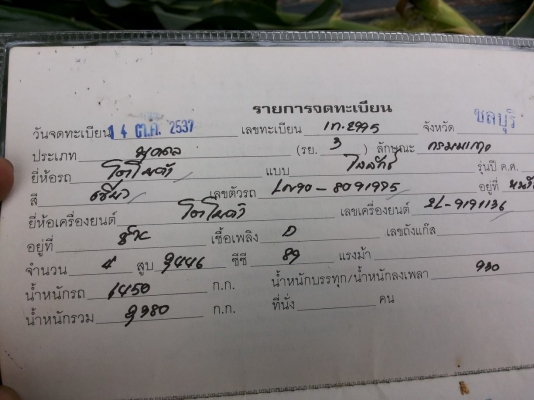 รายการจดทะเบียน
วันจดทะเบียน 14 ต.ค. 2537 เลขทะเบียน จังหวัด ชลบุรี
ประเภท (รย. 3 ) ลักษณะ
ยี่ห้อรถ โตโยต้า แบบ ไฮลักซ์ รุ่นปี ค.ศ.
สี เขียว เลขตัวรถ LN90-8091995 อยู่ที่
ยี่ห้อเครื่องยนต์ โตโยต้า เลขเครื่องยนต์ 2L-9191136
อยู่ที่ ซ้าย เชื้อเพลิง D เลขถังแก๊ส
จำนวน 4 สูบ 2446 ซีซี 89 แรงม้า
น้ำหนักรถ 1450 ก.ก. น้ำหนักบรรทุก/น้ำหนักลงเพลา 930
น้ำหนักรวม 2380 ก.ก. ที่นั่ง คน